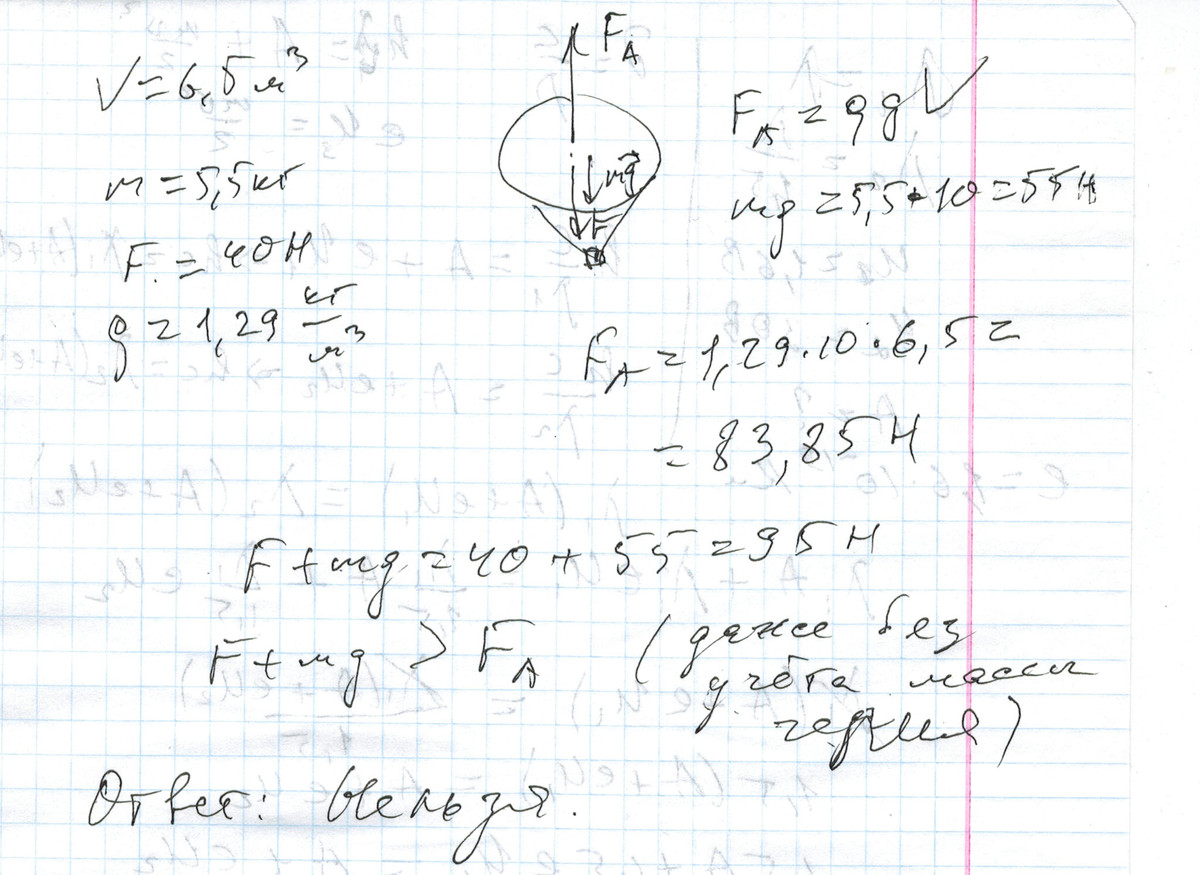 V = 6,5 м³
m = 5,5 кг
F = 40 Н
ρ = 1,29 кг/м³
F_A
mg⃗
F
F_A = ρgV
mg = 5,5 · 10 = 55 Н
F_A = 1,29 · 10 · 6,5 =
= 83,85 Н
F + mg = 40 + 55 = 95 Н
F + mg > F_A (даже без
учёта массы
гелия)
Ответ: Нельзя.